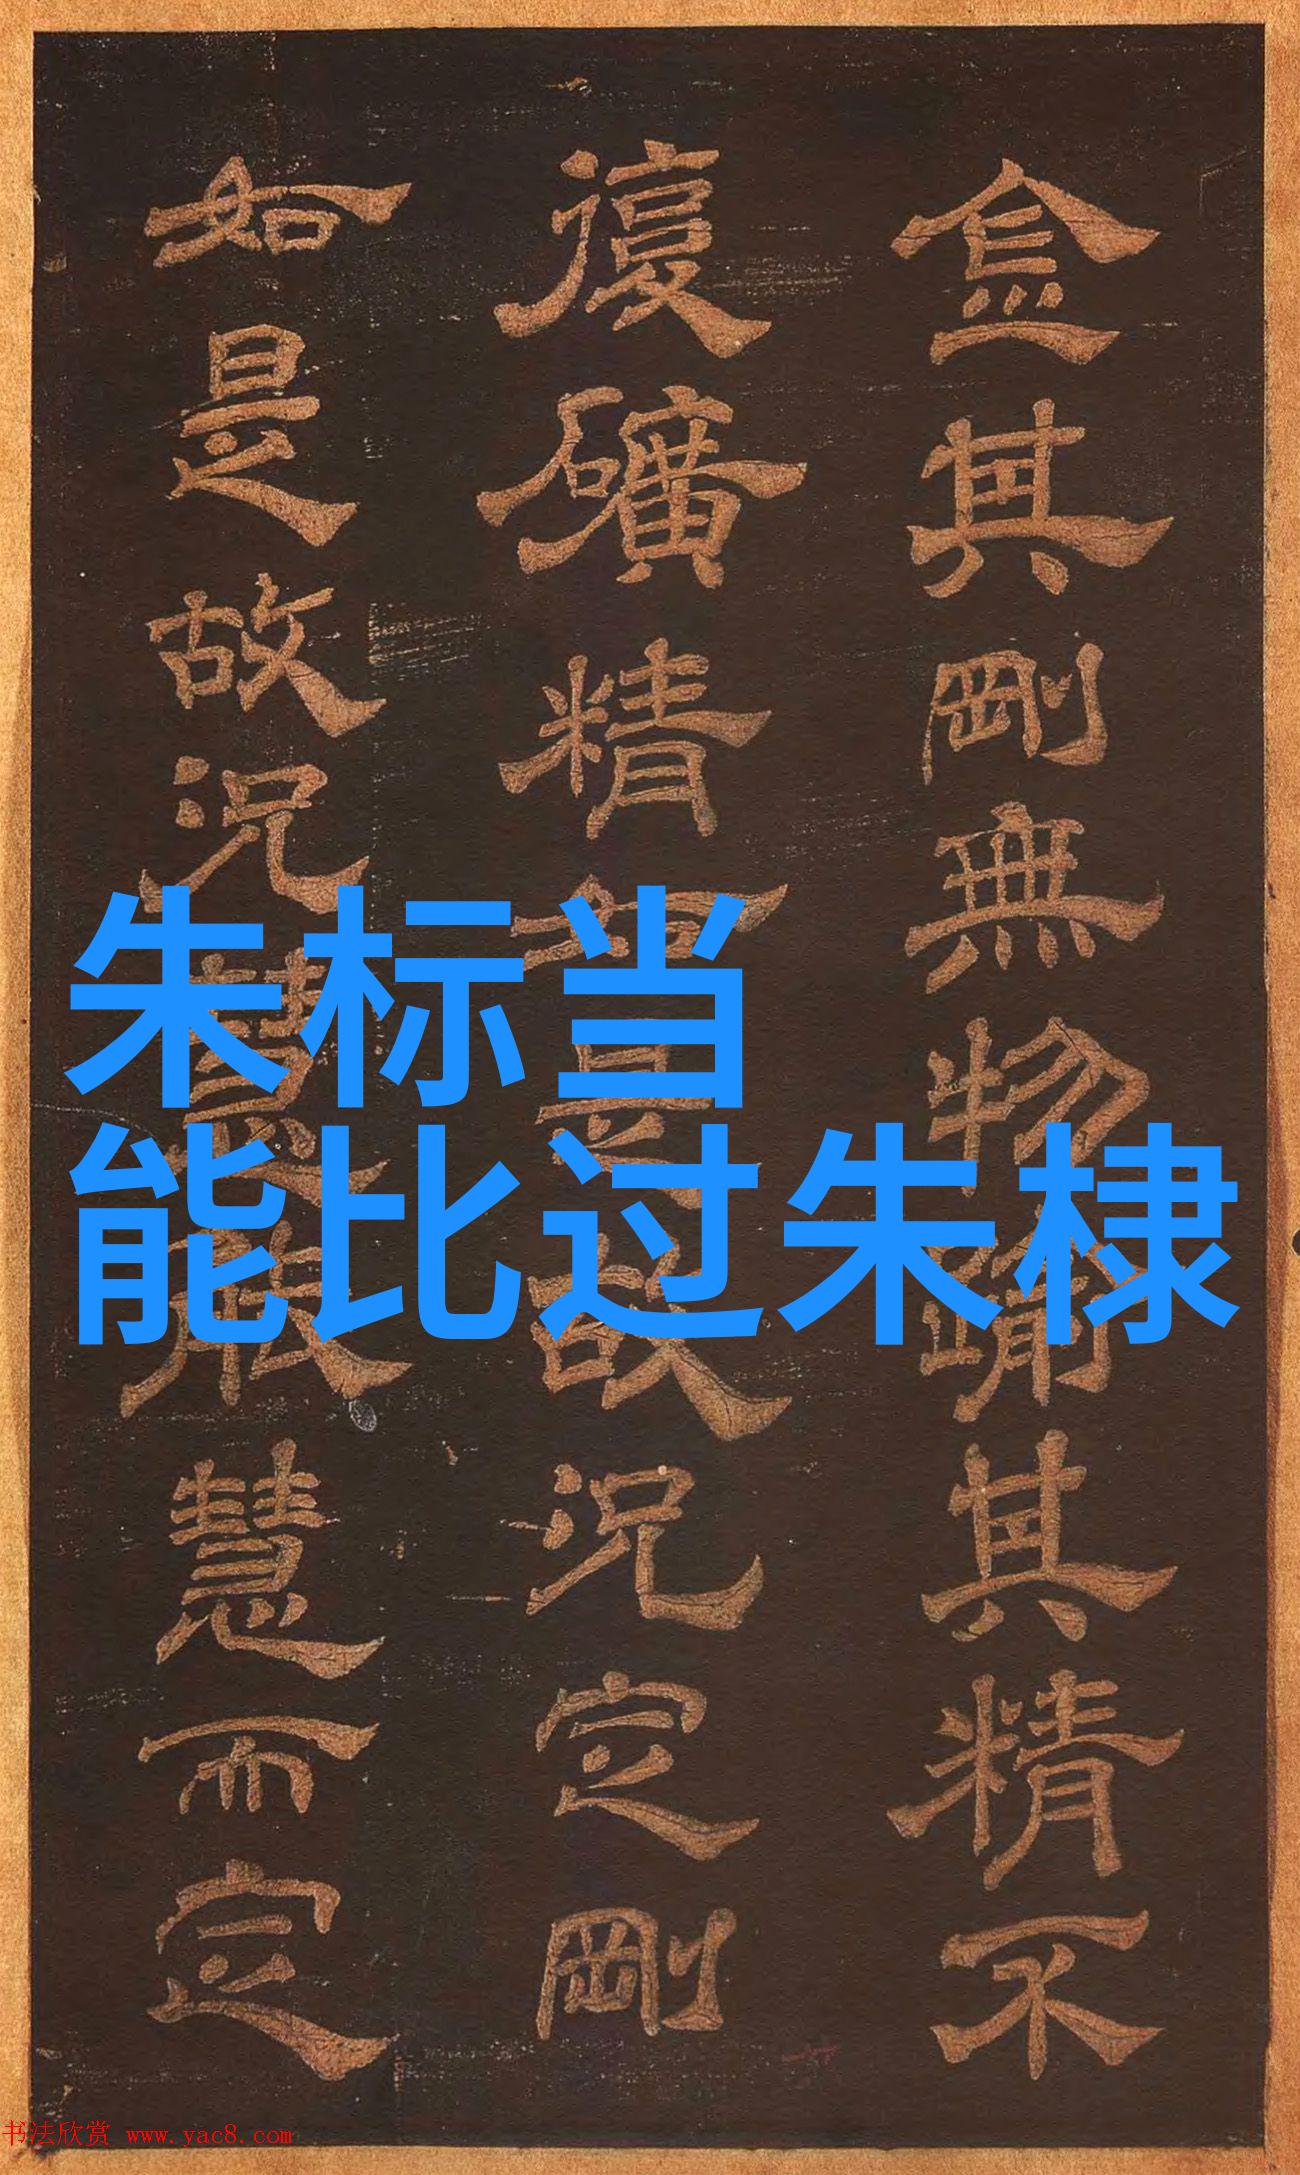 金其剛無物踰其精不
復礦精如是故況定剛
如是故況慧慧而定
朱标当
能比过朱棣
书法欣赏 www.yac8.com